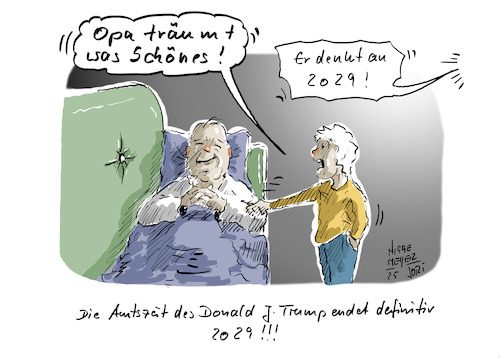 Opa träumt
was Schönes!
Er denkt an
2029!
Die Amtszeit des Donald J. Trump endet definitiv
2029!!!